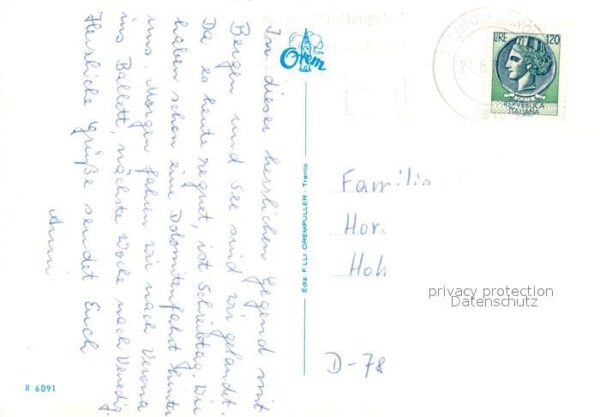 In dieser herrlichen Gegend mit
Bergen und See sind wir gelandet.
Da es heute regnet, ist Schreibtag. Wir
haben schon eine Dolomitenfahrt hinter
uns. Morgen fahren wir nach Verona
ins Ballett, nächste Woche nach Venedig.
Herzliche Grüße sendet Euch
Anni
Orem
Ediz. F.LLI OREMPULLER - Trento
R 6091
LIRE 120
REPUBBLICA
ITALIANA
Familie
Hor
Hoh
D-78
privacy protection
Datenschutz